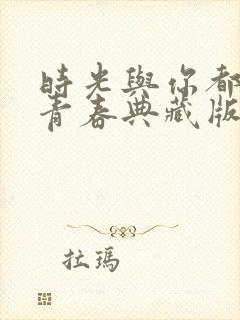 時光與你都
青春典藏版
拉瑪